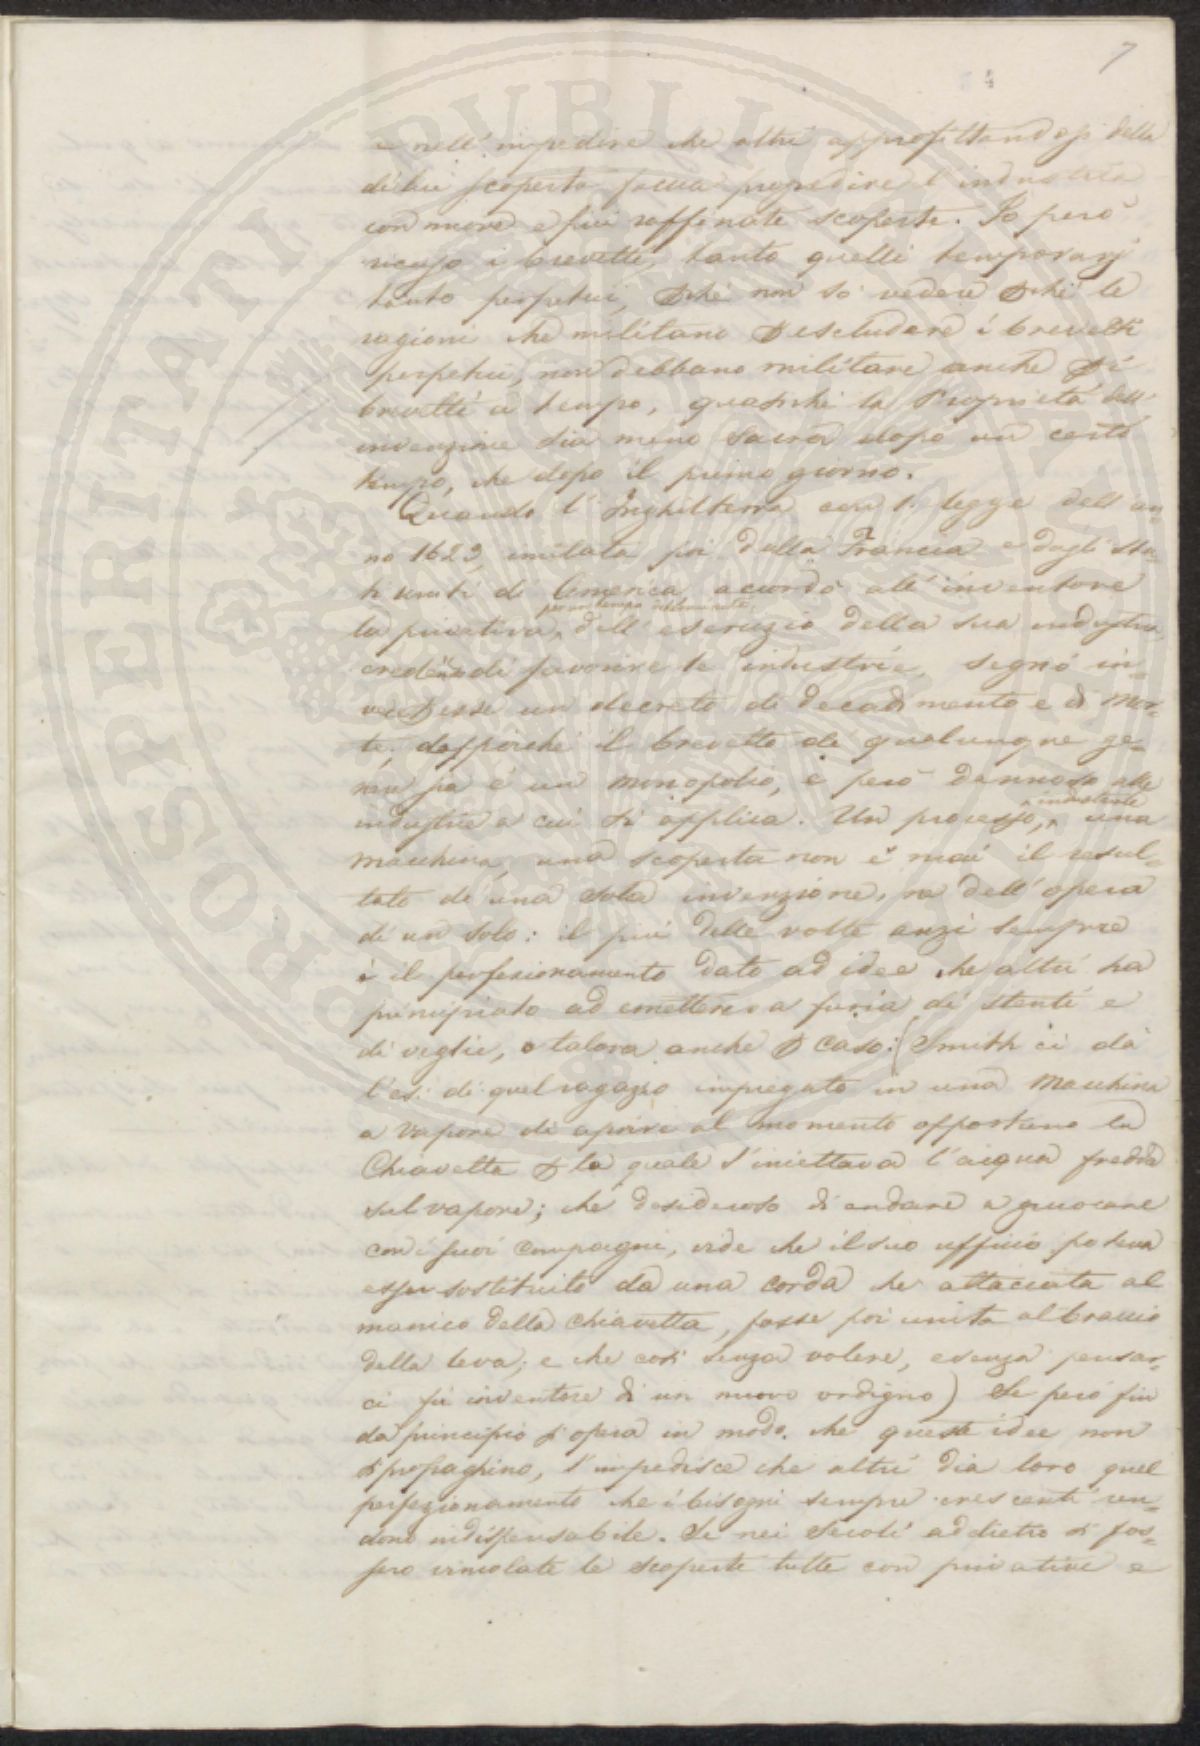 7
4
e nell'impedire che altri approfittandosi della
di lui scoperta faccia progredire l'industria
con nuove e più raffinate scoperte. Io però
ricuso i brevetti, tanto quelli temporarj
tanto perpetui, pché non so vedere pché le
ragioni che militano p escludere i brevetti
perpetui, non debbano militare anche p i
brevetti a tempo, quasiché la Proprietà dell'
invenzione sia meno sacra dopo un certo
tempo, che dopo il primo giorno.
Quando l'Inghilterra con l. legge dell'an=
no 1623, imitata poi dalla Francia e dagli Sta=
ti uniti di America accordò all'inventore
per un tempo determinato
la privativa, dell'esercizio della sua industria,
credendo di favorire le industrie, segnò in=
vece p esse un decreto di decadimento e di mor=
te, dappoiché il brevetto di qualunque ge=
nere sia è un monopolio, e però dannoso alle
industrie a cui si applica. Un processo, industriale una
macchina, una scoperta non è mai il resul=
tato di una sola invenzione, nè dell'opera
di un solo: il più delle volte anzi sempre
è il perfezionamento dato ad idee che altri ha
principiato ad emettere a furia di stenti e
di veglie, o talora anche p caso: (Smith ci dà
l'es: di quel ragazzo impiegato in una macchina
a vapore di aprire al momento opportuno la
Chiavetta p la quale s'iniettava l'acqua fredda
sul vapore; che desideroso di andare a giuocare
con i suoi compagni, vide che il suo ufficio poteva
esser sostituito da una corda che attaccata al
manico della chiavetta, fosse poi unita al braccio
della leva; e che così senza volere, e senza pensar=
ci fù inventore di un nuovo ordigno) Se però fin
da principio s'opera in modo, che queste idee non
si propaghino, s'impedisce che altri dia loro quel
perfezionamento che i bisogni sempre crescenti ren=
dono indispensabile. Se nei Secoli addietro si fos=
sero vincolate le scoperte tutte con privative e
PROSPERITATI PUBLICAE